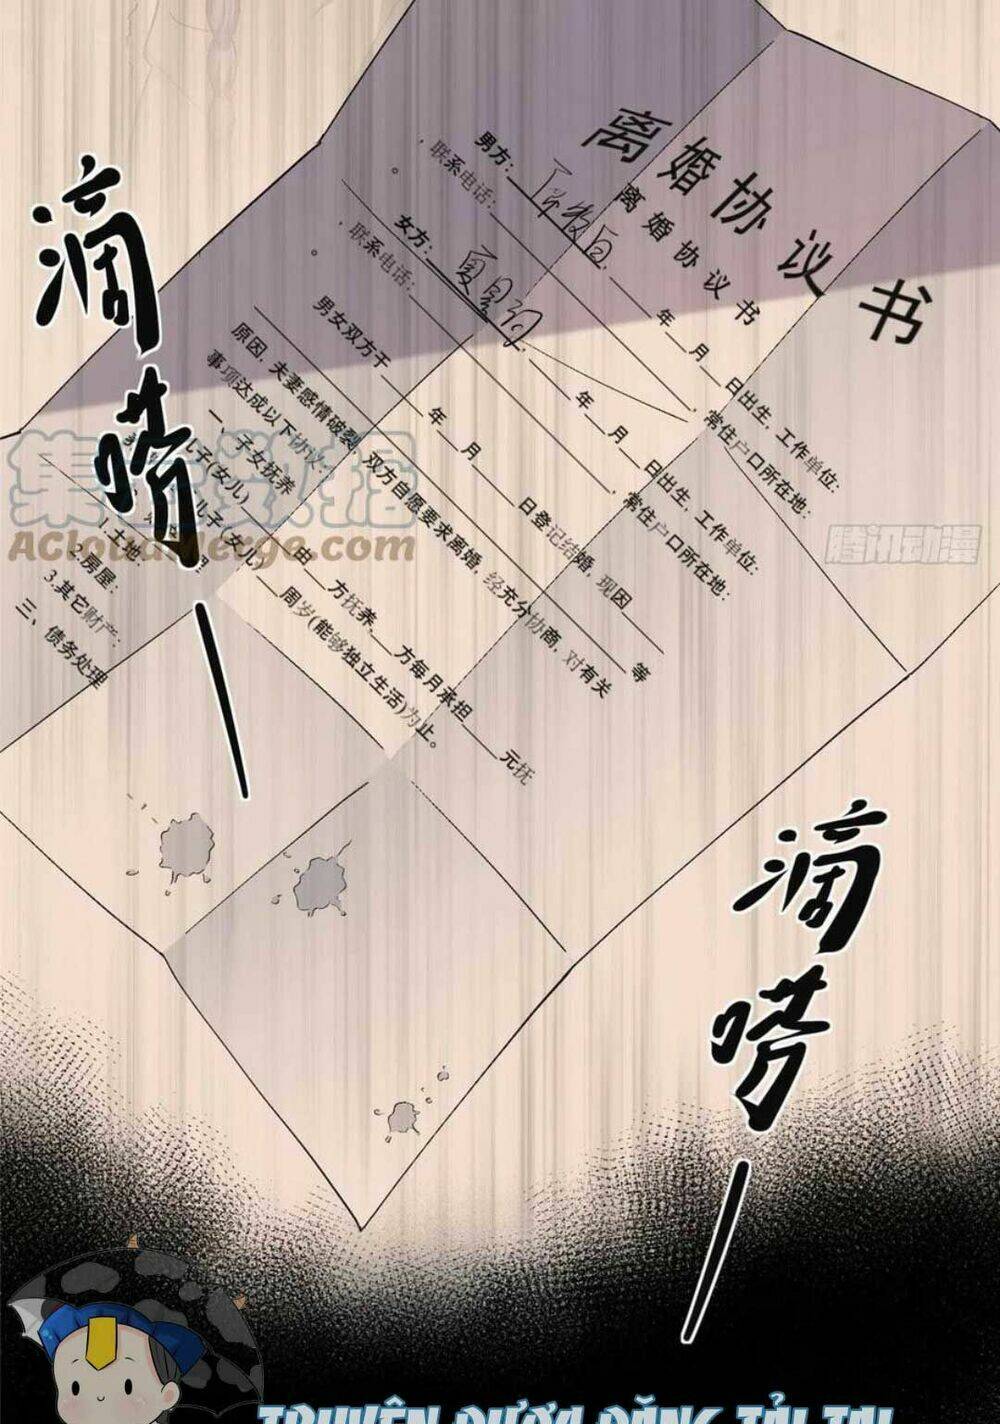 离婚协议书
离婚协议书
男方: 年 月 日出生, 工作单位:
, 常住户口所在地:
, 联系电话:
。
女方: 年 月 日出生, 工作单位:
, 常住户口所在地:
, 联系电话:
。
男女双方于 年 月 日登记结婚, 现因
等
原因, 夫妻感情破裂, 双方自愿要求离婚, 经充分协商, 对有关
事项达成以下协议:
一、子女抚养
儿子(女儿) 由 方抚养, 方每月承担 元抚
儿子(女儿) 周岁(能够独立生活)为止。
1.土地:
2.房屋:
3.其它财产:
三、债务处理
滴
嘮
滴
嘮
腾讯动漫
ACloudMerge.com
TRUYỆN ĐƯỢC ĐĂNG TẢI TẠI